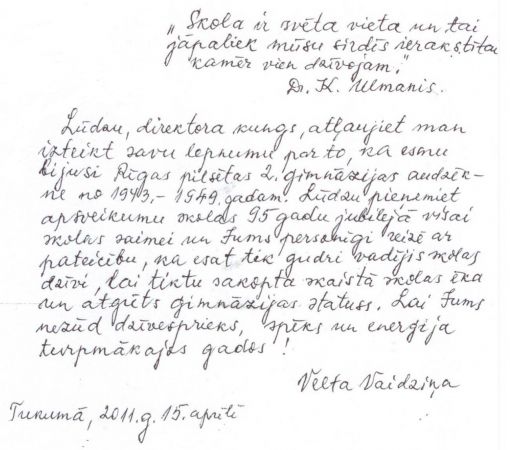 „Skola ir svēta vieta un tai
jāpaliek mūsu sirdīs ierakstītai
kamēr vien dzīvojam."
Dr. K. Ulmanis.
Lūdzu, direktora kungs, atļaujiet man
izteikt savu lepnumu par to, ka esmu
bijusi Rīgas pilsētas 2. ģimnāzijas audzēk-
ne no 1943,- 1949. gadam. Lūdzu pieņemiet
apsveikumu skolas 95 gadu jubilejā visai
skolas saimei un Jums personīgi reizē ar
pateicību, ka esat tik gudri vadījis skolas
dzīvi, lai tiktu sakopta skaistā skolas ēka
un atgūts ģimnāzijas statuss. Lai Jums
nezūd dzīvesprieks, spēks un enerģija
turpmākajos gados!
Velta Vaidziņa
Tukumā, 2011.g. 15. aprīlī